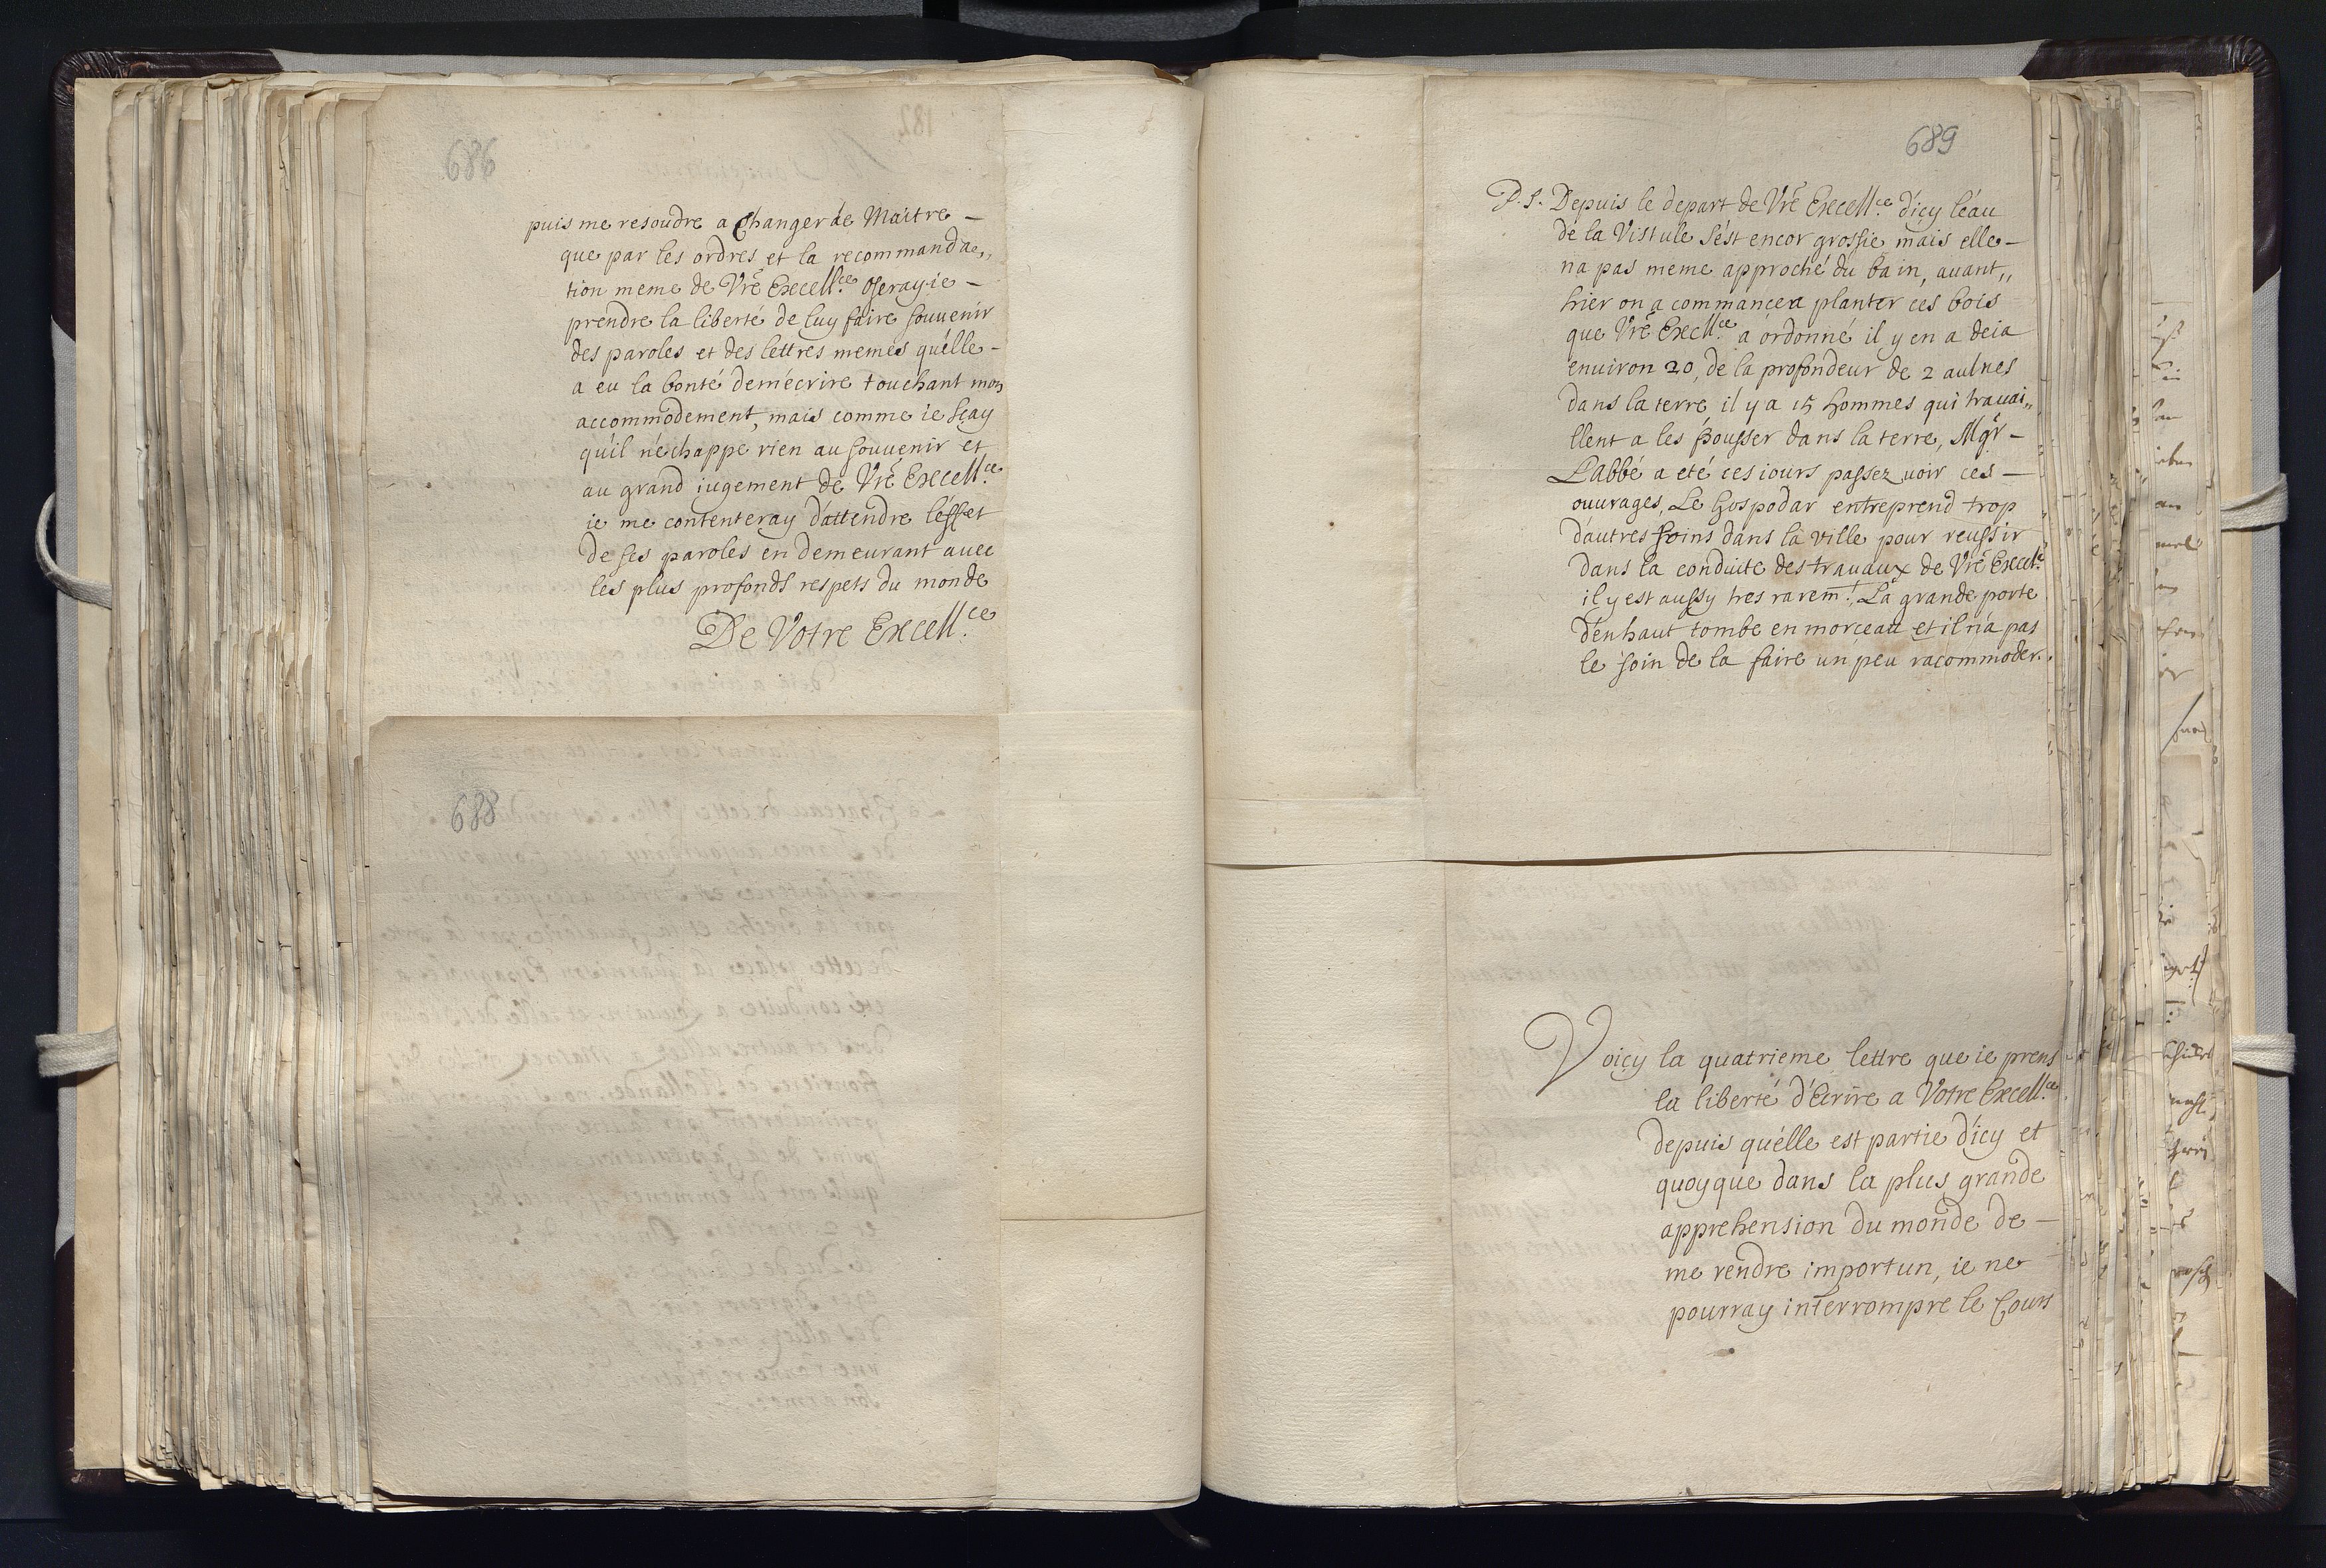 686
puis me resoudre a Changer de Maitre –
que par les ordres et la recommanda„
tion meme de Vrē Excell.ce Oseray-ie –
prendre la liberté de luy faire souvenir
des paroles et des lettres memes qu'elle –
a eu la bonté dem'ecrire touchant mon
accommodement, mais comme ie sçay
qu'il n'echappe rien au souuenir et
au grand iugement de Vrē Excell.ce
ie me contenteray d'attendre l'effet
de ses paroles en demeurant auec
les plus profonds respets du monde
De Votre Excell.ce
688
689
P.S. Depuis le depart de Vrē Excell.ce d'icy l'eau
de la Vistule s'est encor grossie mais elle –
na pas meme approché du bain, auant„
hier on a commancer planter ces bois
que Vrē Excll.ce a ordonné il y en a deia
enuiron 20, de la profondeur de 2 aulnes
dans la terre il y a 15 hommes qui trauai„
llent a les pousser dans la terre, Mgr –
L'abbé a eté ces iours passez uoir ces –
ouurages, Le hospodar entreprend trop
d'autres soins dans la ville pour reussir
dans la conduite des trauaux de Vrē Excel.ce
il y est aussy tres rarem.t, La grande porte
d'en haut tombe en morceau et il n'a pas
le soin de la faire un peu racommoder.
Voicy la quatrieme lettre que ie prens
la liberté d'Ecrire a Votre Excell.ce
depuis qu'elle est partie d'icy et
quoyque dans la plus grande
apprehension du monde de –
me rendre importun, ie ne
pourray interrompre le Cours